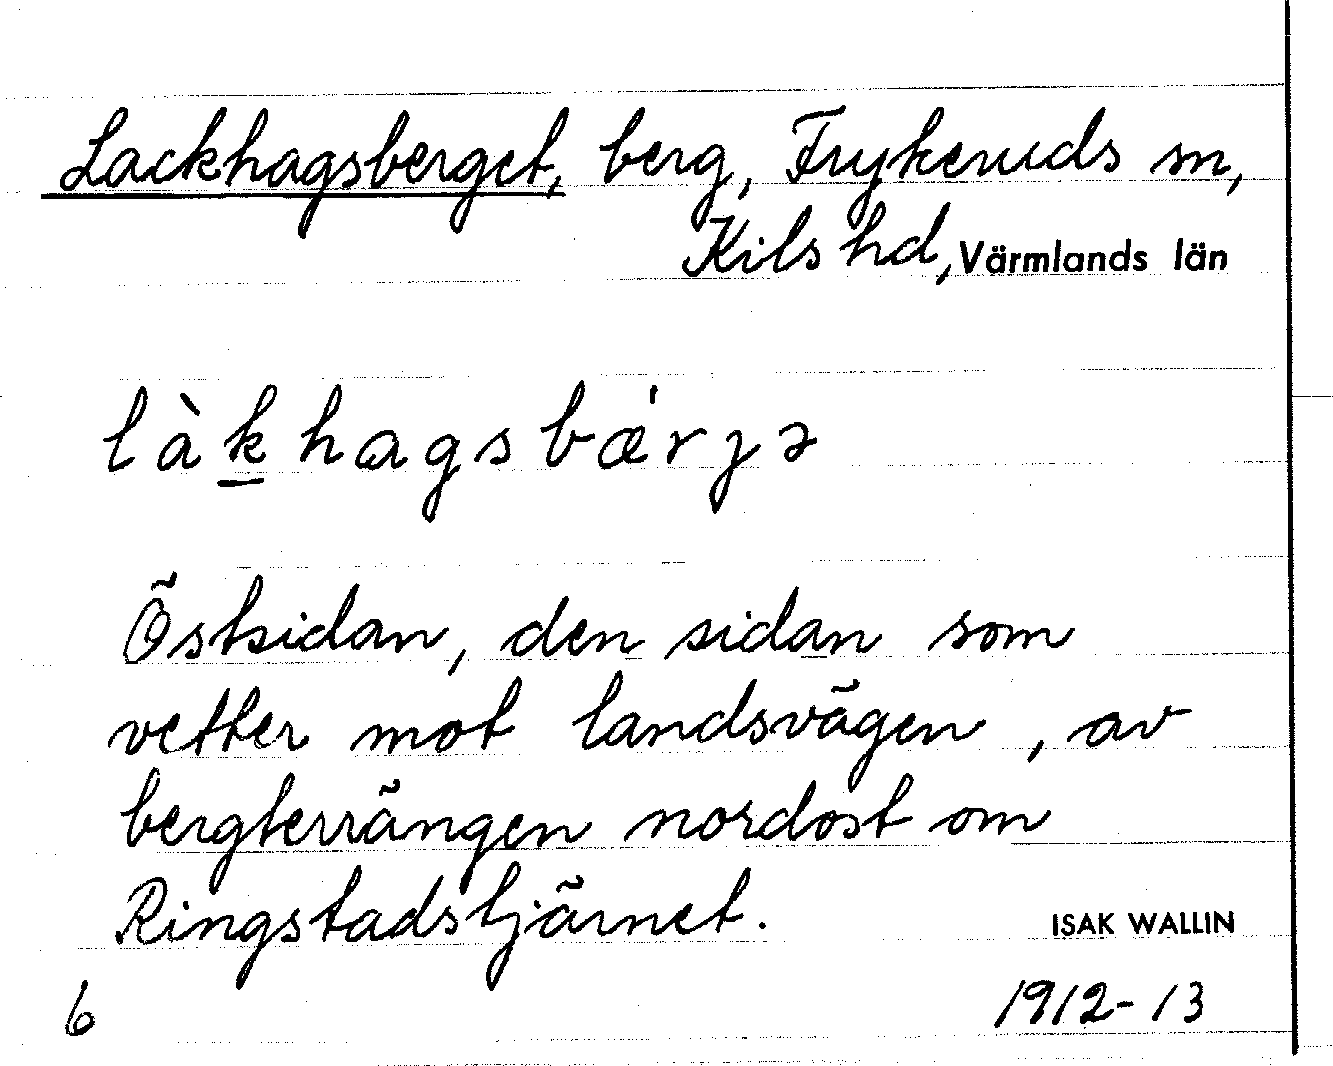 Lackhagsberget, berg, Frykeruds sn,
Kils hd, Värmlands län
làkhagsbǽrjə
Östsidan, den sidan som
vetter mot landsvägen, av
bergterrängen nordost om
Ringstadstjärnet.
ISAK WALLIN
6 1912-13